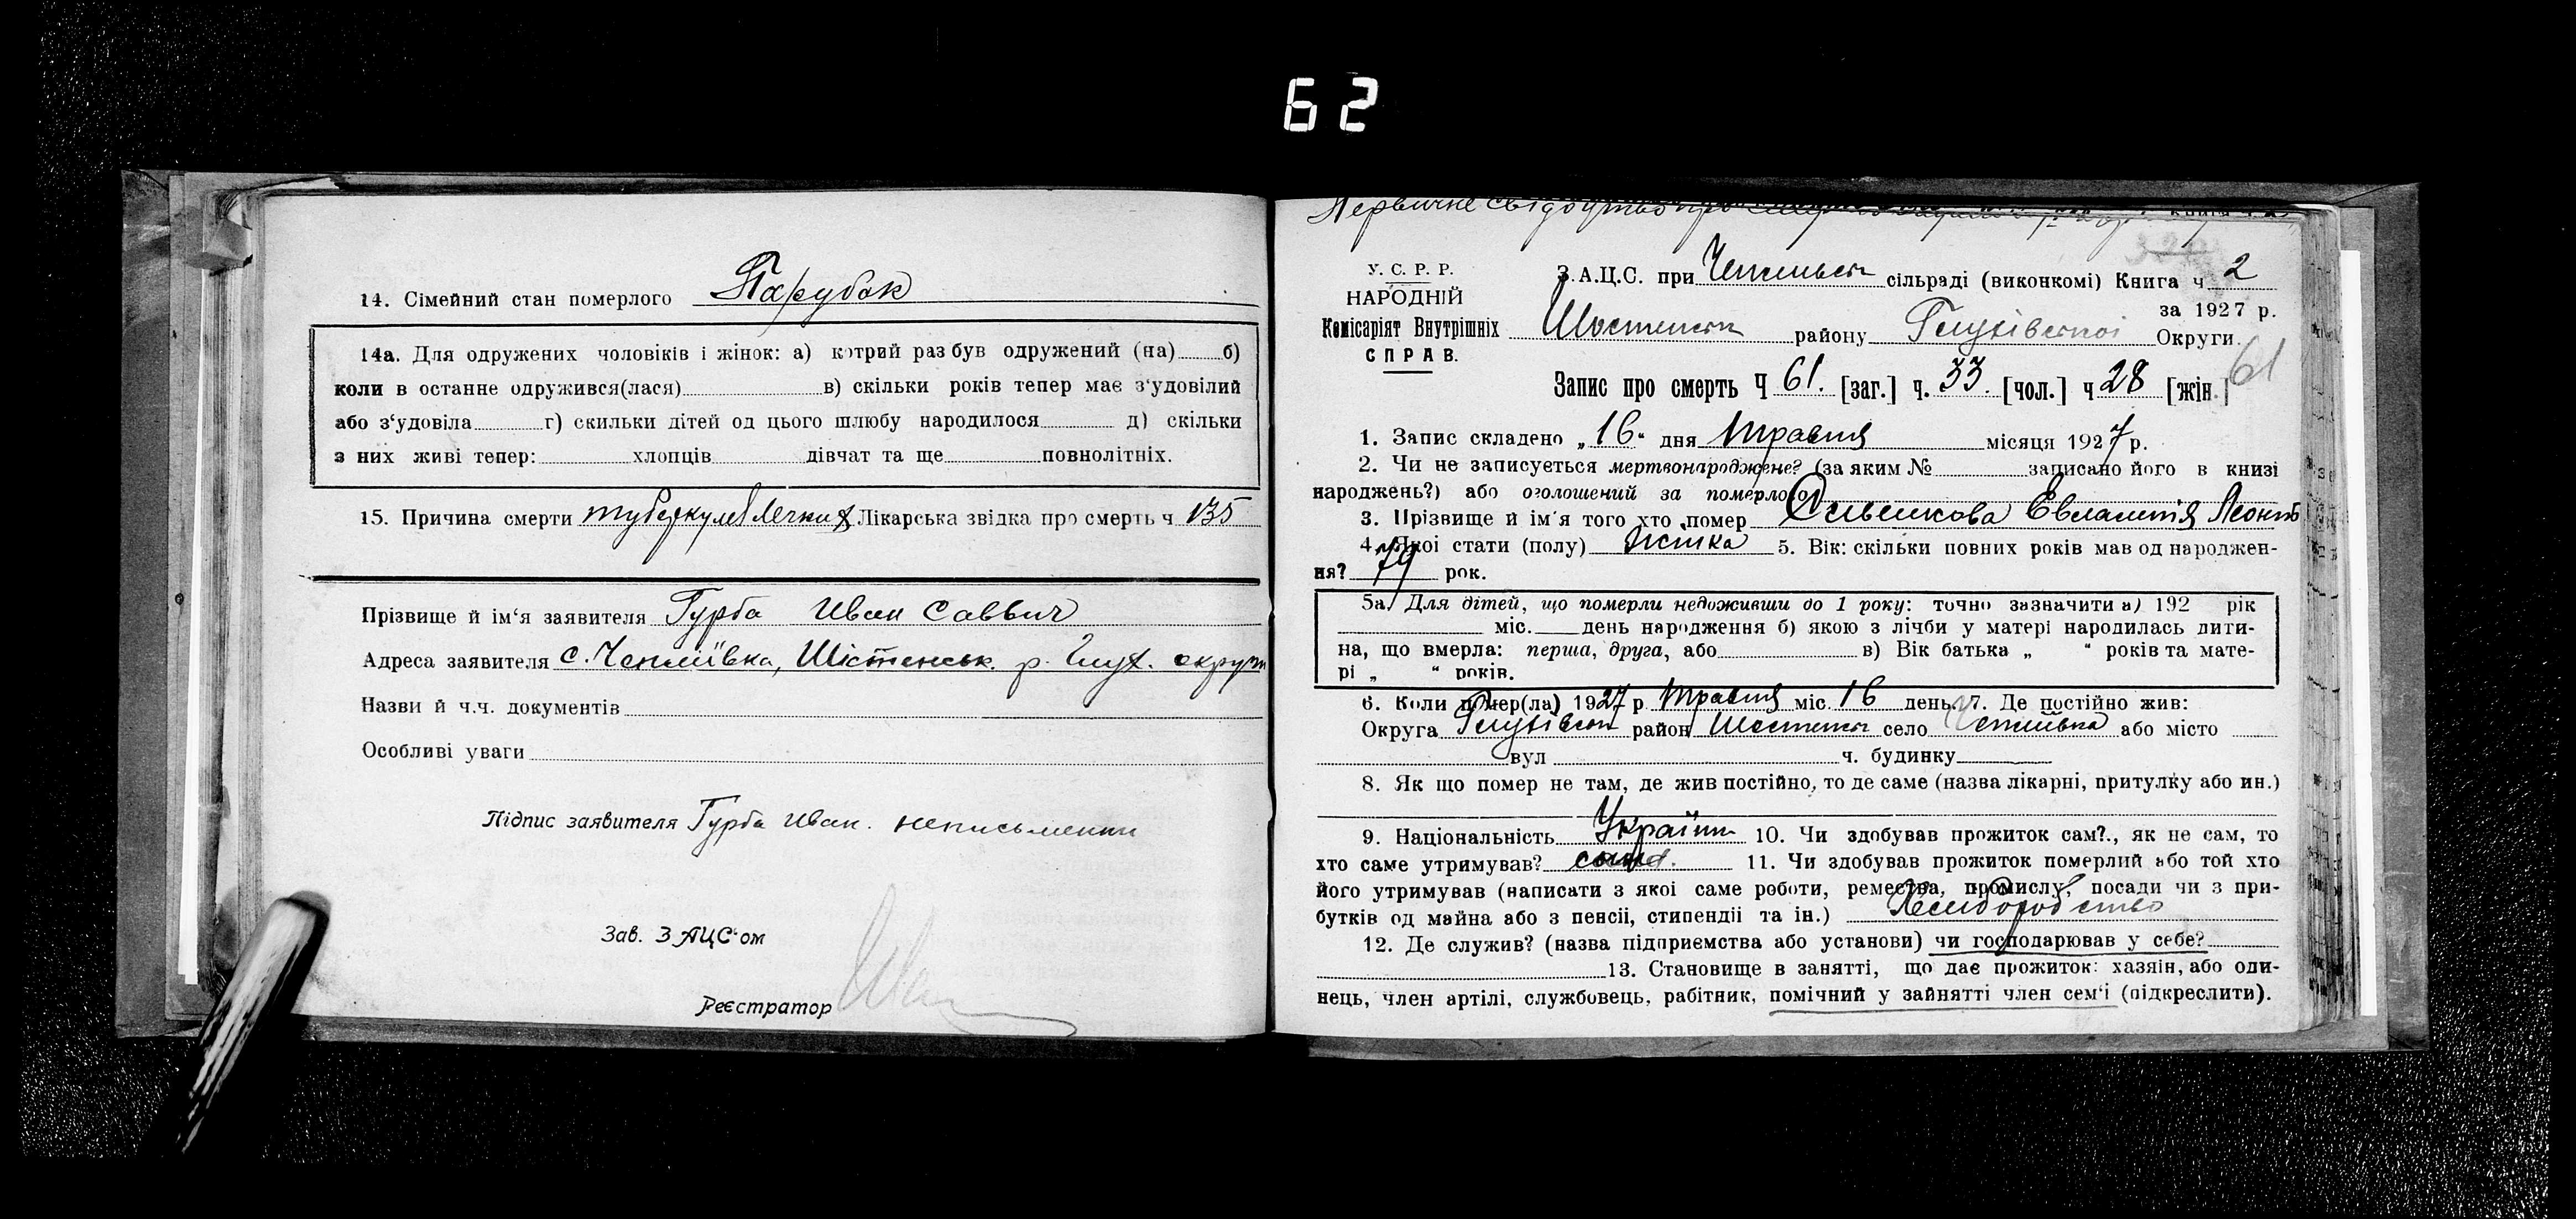 62
14. Сімейний стан померлого Парубок
14а. Для одружених чоловіків і жінок: а) котрий раз був одружений (на) б)
коли в останне одружився(лася) в) скільки років тепер має з'удовілий
або з'удовіла г) скильки дітей од цього шлюбу народилося д) скільки
з них живі тепер: хлопців дівчат та ще повнолітніх.
15. Причина смерти Лікарська звідка про смерть ч 135
Прізвище й ім'я заявителя Гурба Иван Саввич
Адреса заявителя с. Чепліївка, Шістенськ. р. Глух. округи
Назви й ч.ч. документів
Особливі уваги
Підпис заявителя Гурба Иван. неписьменни
Зав. ЗАЦС'ом
Реєстратор
Первичне свідоцтво про
У. С. Р. Р.
НАРОДНІЙ
Комісаріят Внутрішніх
СПРАВ.
З.А.Ц.С. при сільраді (виконкомі) Книга ч 2
за 1927 р.
Шостенськ району Глухівської Округи.
61
Запис про смерть Ч 61. [заг.] ч. 33. [чол.] ч 28 [жін.]
1. Запис складено „16" дня Травня місяця 1927 р.
2. Чи не записується мертвонароджене? (за яким № записано його в книзі
народжень?) або оголошений за померлого
3. Прізвище й ім'я того хто помер Євлампія Леонт
4. Якої стати (полу) 5. Вік: скільки повних років мав од народжен-
ня? 79 рок.
5а. Для дітей, що померли недоживши до 1 року: точно зазначити а) 192 рік
міс. день народження б) якою з лічби у матері народилась дити-
на, що вмерла: перша, друга, або в) Вік батька „ " років та мате-
рі „ " років.
6. Коли помер(ла) 1927 р Травня міс. 16 день. 7. Де постійно жив:
Округа Глухівськ район Шостенськ село Чепліївка або місто
вул ч. будинку
8. Як що помер не там, де жив постійно, то де саме (назва лікарні, притулку або ин.)
9. Національність Україн 10. Чи здобував прожиток сам?., як не сам, то
хто саме утримував? 11. Чи здобував прожиток померлий або той хто
його утримував (написати з якоі саме роботи, ремества, промислу, посади чи з при-
бутків од майна або з пенсіі, стипендіі та ін.) Хліборобство
12. Де служив? (назва підприемства або установи) чи господарював у себе?
13. Становище в занятті, що дає прожиток: хазяін, або оди-
нець, член артілі, службовець, рабітник, помічний у зайнятті член сем'і (підкреслити).